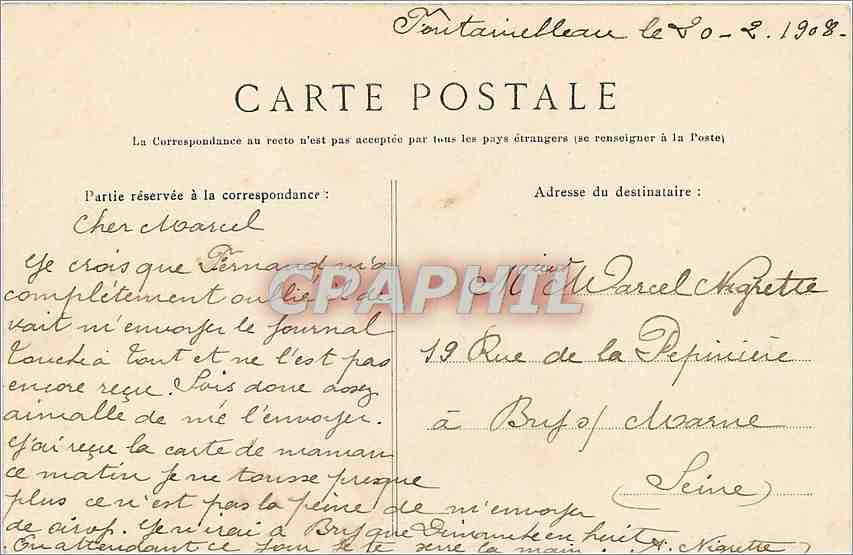 Fontainebleau le 20-2.1908-
CARTE POSTALE
La Correspondance au recto n'est pas acceptée par tous les pays étrangers (se renseigner à la Poste)
Partie réservée à la correspondance :
Cher Marcel
Je crois que Fernand m'a
complètement oublié il de
vait m'envoyer le Journal
Touche à Tout et ne l'est pas
encore reçu. Sois donc assez
aimalle de me l'envoyer.
J'ai reçue la carte de maman
ce matin je ne tousse presque
plus ce n'est pas la peine de m'envoyer
de sirop. Je n'irai à Bry que Dimanche en huit
En attendant ce jour je te serre la main. A. Nigrette
Adresse du destinataire :
Marcel Nigrette
19 Rue de la Pépinière
à Bry s/ Marne
(Seine)
CPAPHIL